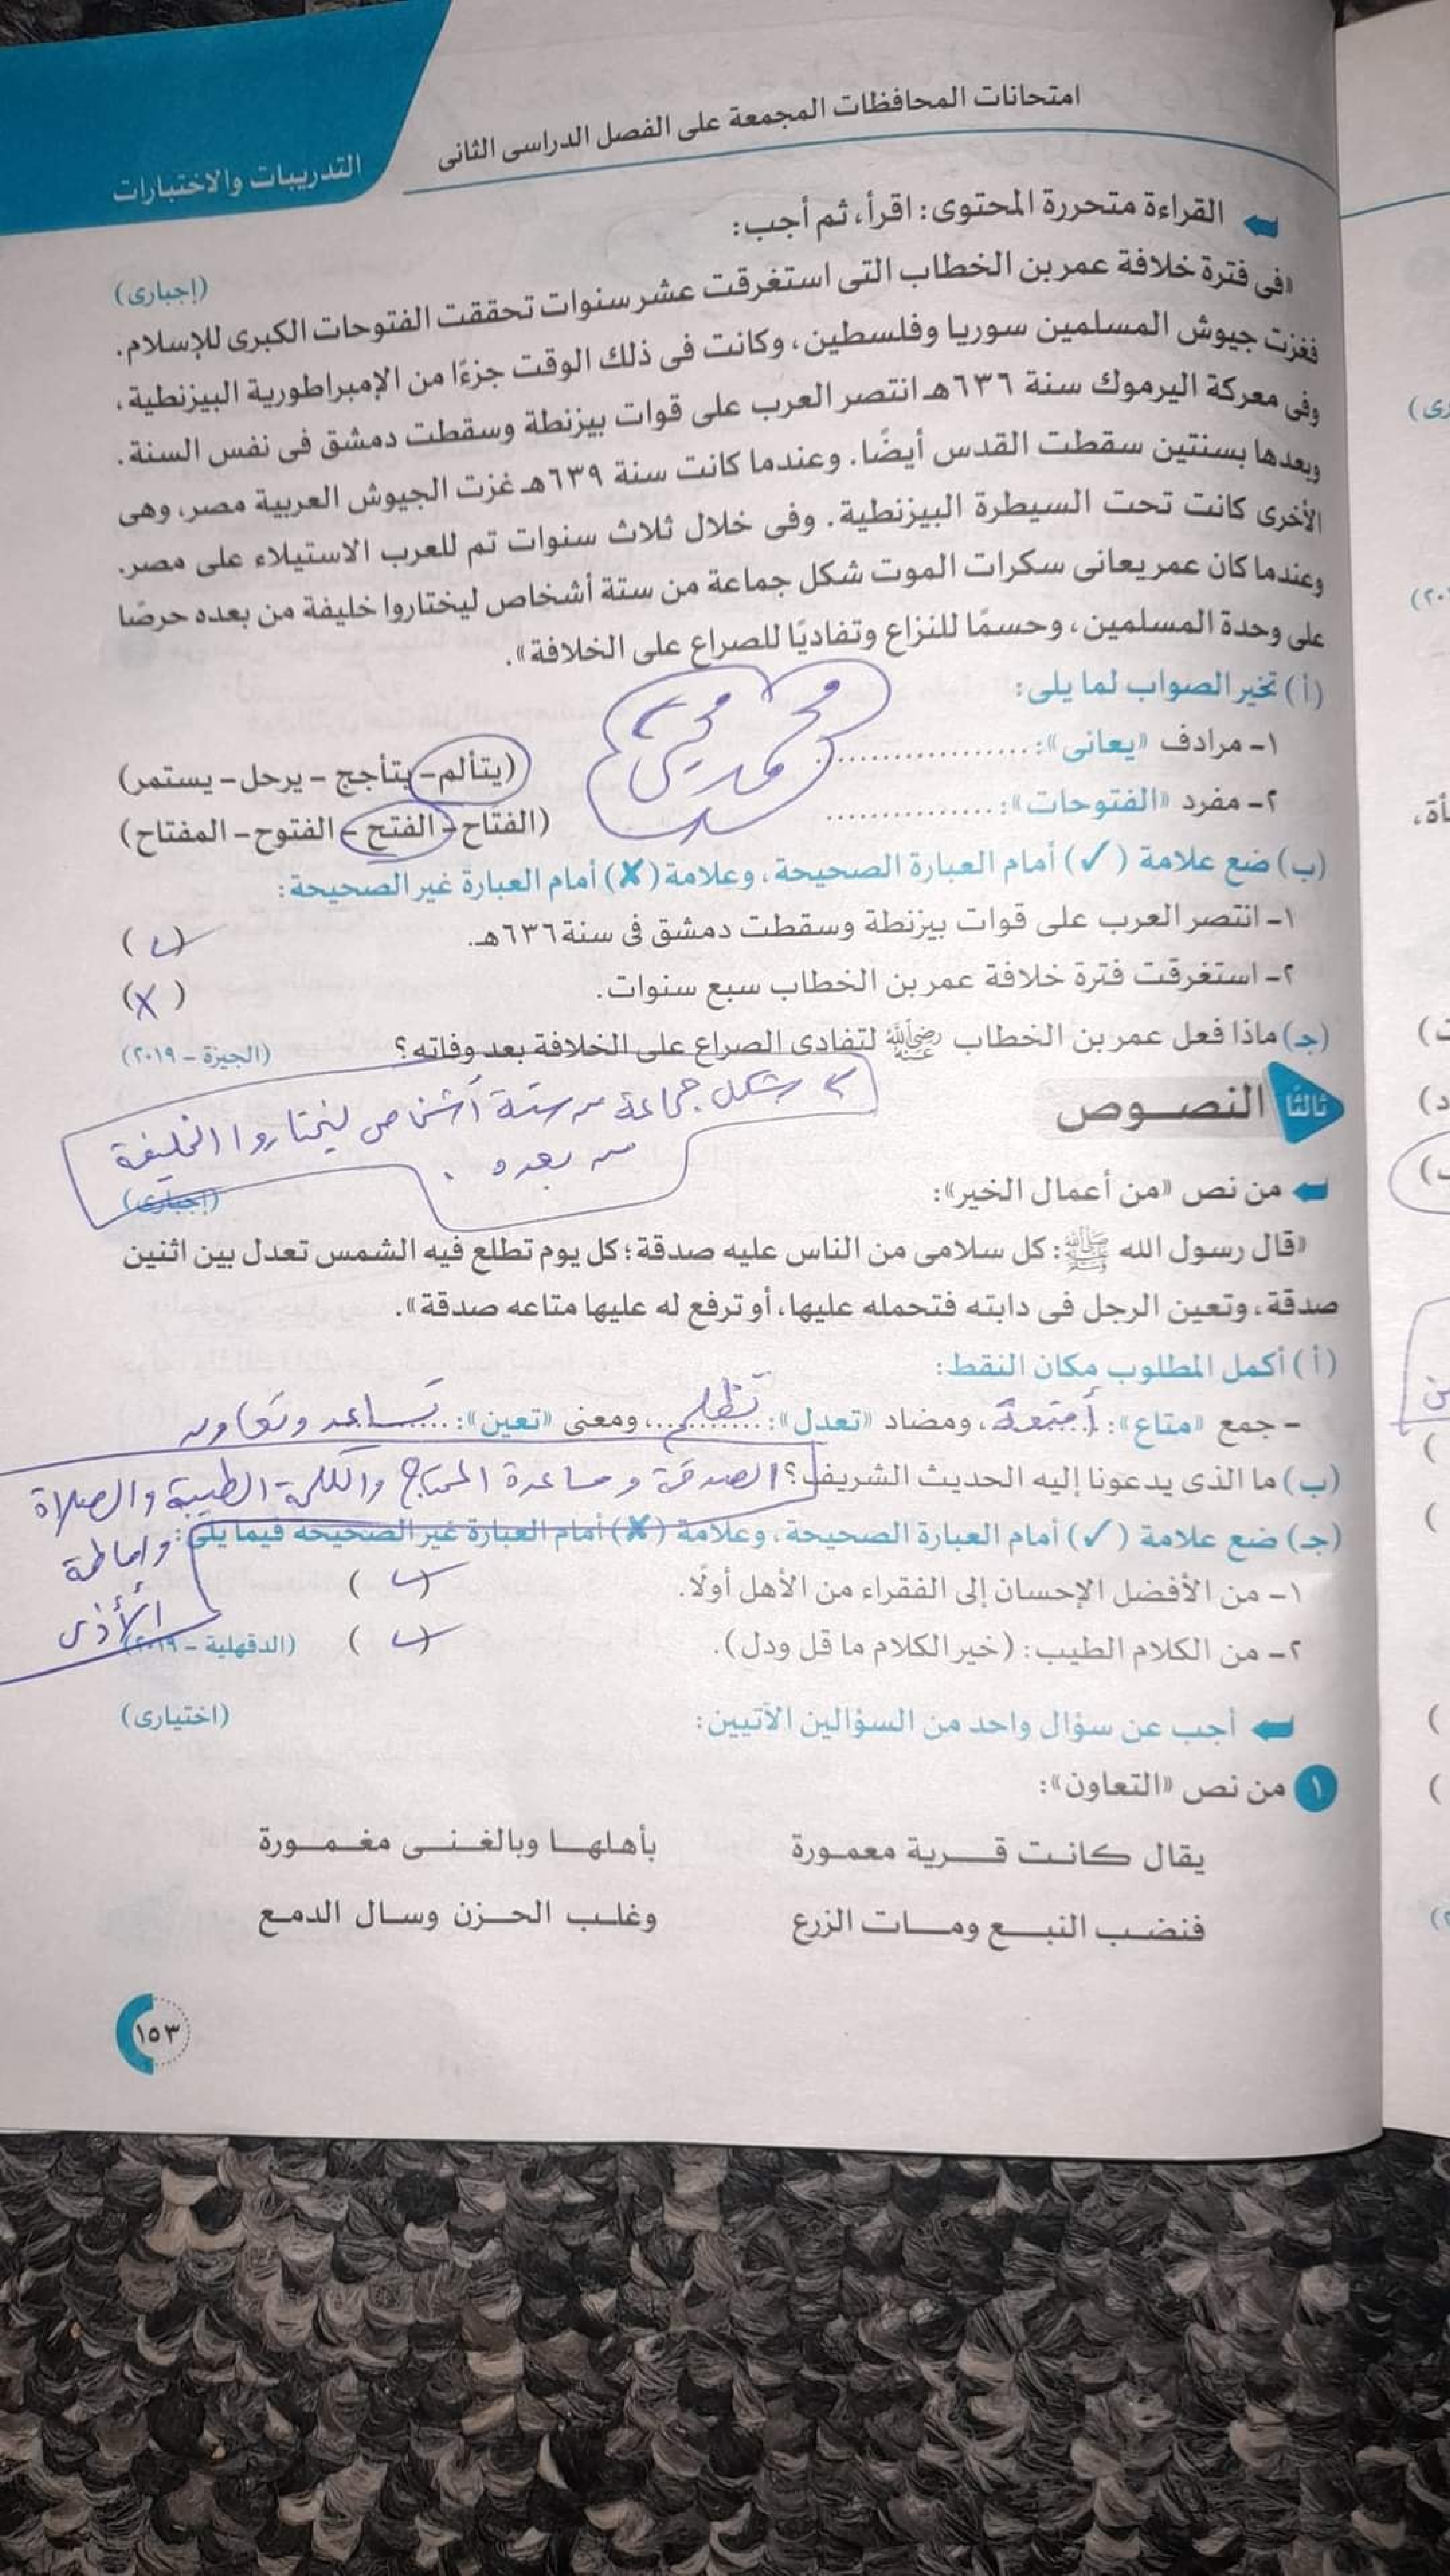 امتحانات المحافظات المجمعة على الفصل الدراسى الثانى
التدريبات والاختبارات
القراءة متحررة المحتوى: اقرأ، ثم أجب:
(إجبارى)
«فى فترة خلافة عمر بن الخطاب التى استغرقت عشر سنوات تحققت الفتوحات الكبرى للإسلام.
فغزت جيوش المسلمين سوريا وفلسطين، وكانت فى ذلك الوقت جزءًا من الإمبراطورية البيزنطية،
وفى معركة اليرموك سنة ٦٣٦هـ انتصر العرب على قوات بيزنطة وسقطت دمشق فى نفس السنة.
وبعدها بسنتين سقطت القدس أيضًا. وعندما كانت سنة ٦٣٩هـ غزت الجيوش العربية مصر، وهى
الأخرى كانت تحت السيطرة البيزنطية. وفى خلال ثلاث سنوات تم للعرب الاستيلاء على مصر.
وعندما كان عمر يعانى سكرات الموت شكل جماعة من ستة أشخاص ليختاروا خليفة من بعده حرصًا
على وحدة المسلمين، وحسمًا للنزاع وتفاديًا للصراع على الخلافة».
(أ) تخير الصواب لما يلى:
١- مرادف «يعانى»: ..................
(يتألم - يتأجج - يرحل - يستمر)
٢- مفرد «الفتوحات»: ...............
(الفتاح - الفتح - الفتوح - المفتاح)
(ب) ضع علامة (✓) أمام العبارة الصحيحة، وعلامة (✗) أمام العبارة غير الصحيحة:
١- انتصر العرب على قوات بيزنطة وسقطت دمشق فى سنة ٦٣٦هـ. (✓)
٢- استغرقت فترة خلافة عمر بن الخطاب سبع سنوات. (X)
(جـ) ماذا فعل عمر بن الخطاب رضي الله عنه لتفادى الصراع على الخلافة بعد وفاته؟ (الجيزة - ٢٠١٩)
شكل جماعة من ستة أشخاص ليختاروا الخليفة
من بعده.
ثالثًا النصوص
من نص «من أعمال الخير»:
(إجبارى)
«قال رسول الله ﷺ: كل سلامى من الناس عليه صدقة؛ كل يوم تطلع فيه الشمس تعدل بين اثنين
صدقة، وتعين الرجل فى دابته فتحمله عليها، أو ترفع له عليها متاعه صدقة».
(أ) أكمل المطلوب مكان النقط:
- جمع «متاع»: أمتعة، ومضاد «تعدل»: تظلم، ومعنى «تعين»: تساعد وتعاون
(ب) ما الذى يدعونا إليه الحديث الشريف؟ الصدقة ومساعدة المحتاج والكلمة الطيبة والصلاة
وإماطة
الأذى
(جـ) ضع علامة (✓) أمام العبارة الصحيحة، وعلامة (✗) أمام العبارة غير الصحيحة فيما يلى:
١- من الأفضل الإحسان إلى الفقراء من الأهل أولًا. (✓)
٢- من الكلام الطيب: (خير الكلام ما قل ودل). (✓) (الدقهلية - ٢٠١٩)
أجب عن سؤال واحد من السؤالين الآتيين: (اختيارى)
١ من نص «التعاون»:
يقال كانت قرية معمورة بأهلها وبالغنى مغمورة
فنضب النبع ومات الزرع وغلب الحزن وسال الدمع
١٥٣